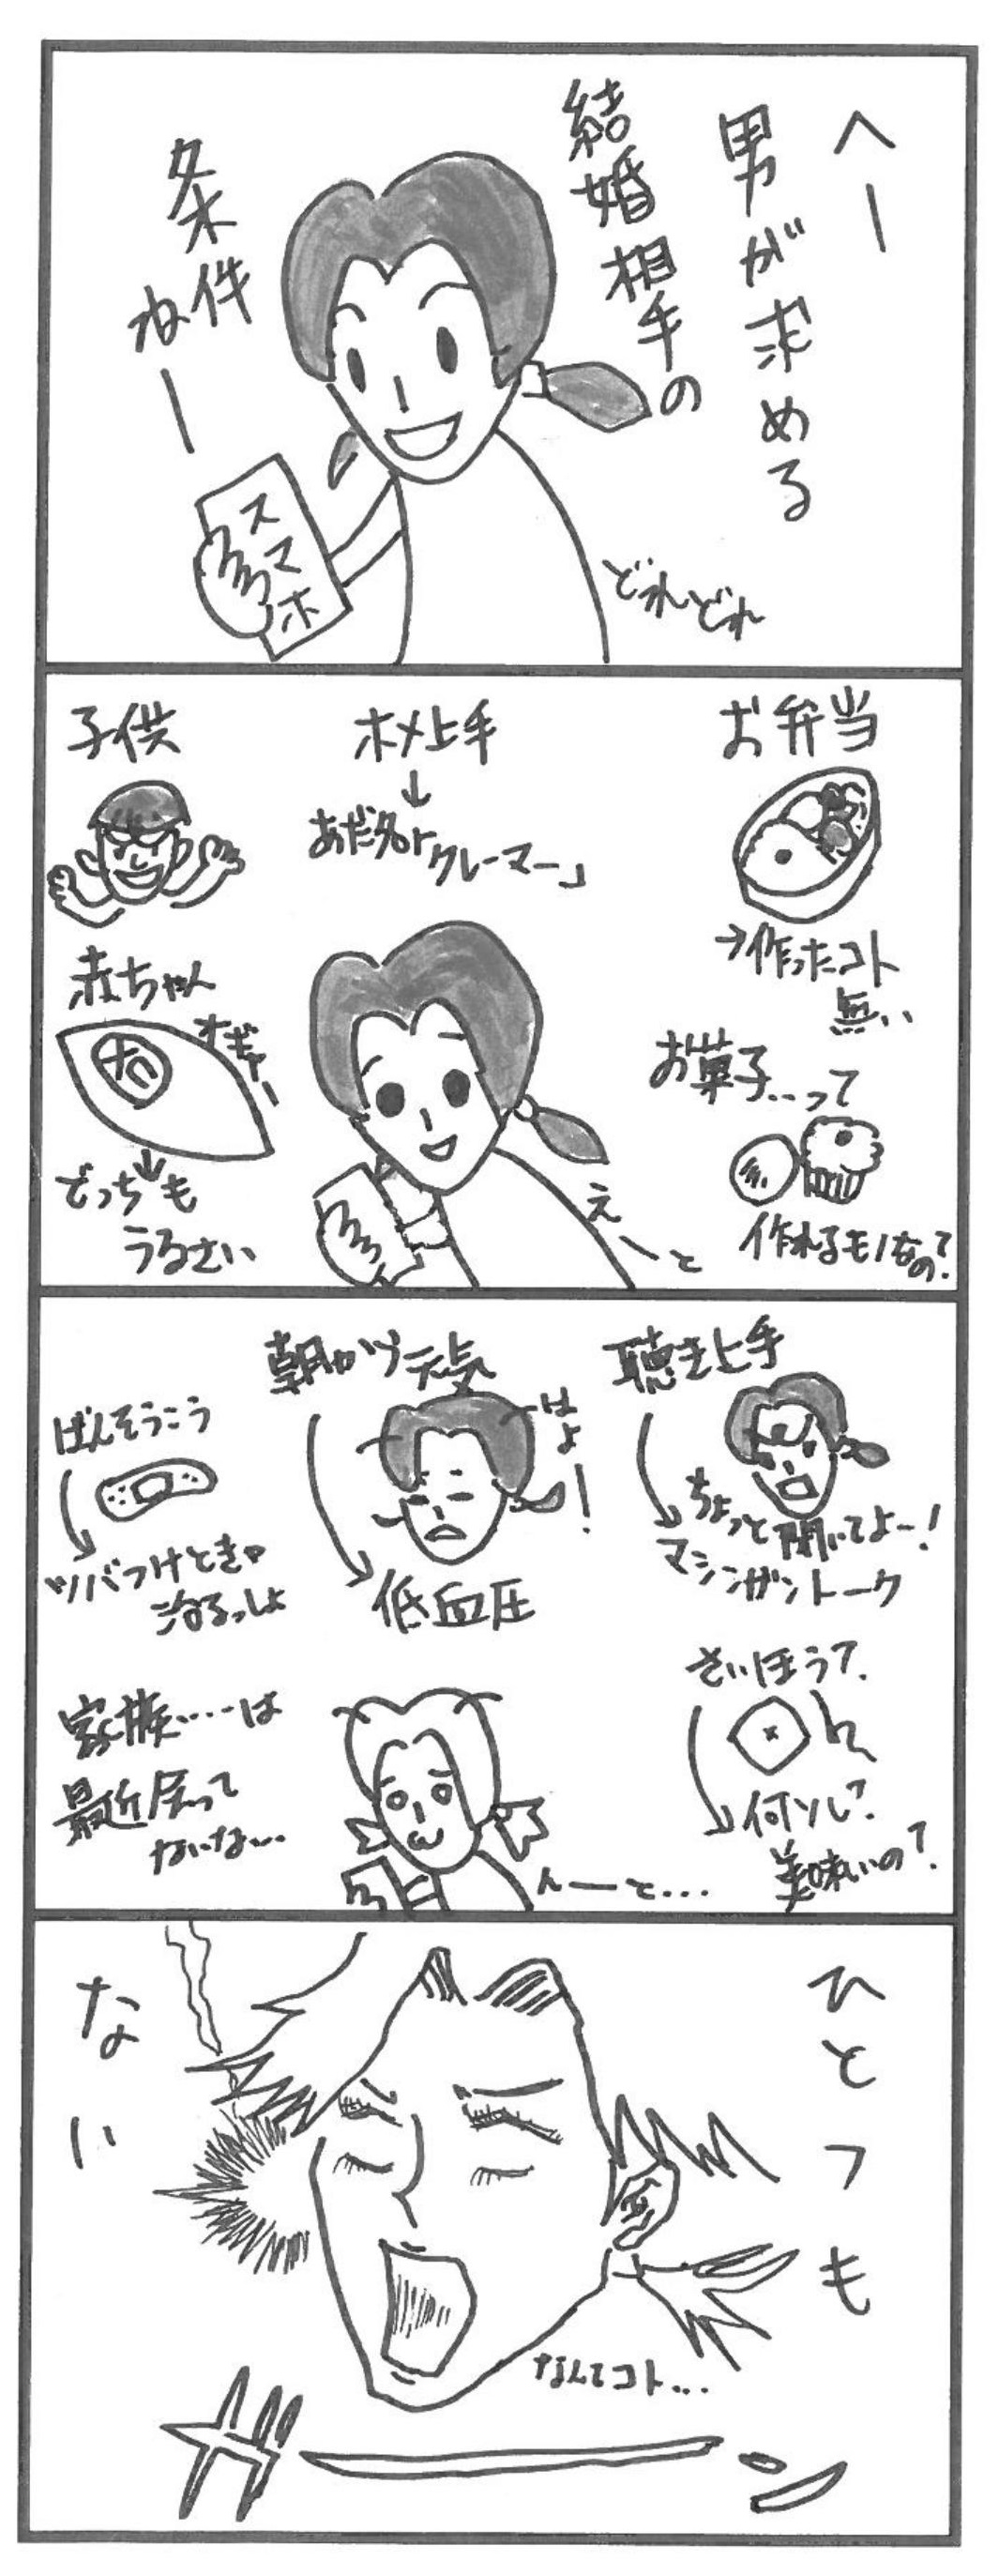 へー
男が求める
結婚相手の
条件
ねー
スマホ
どれどれ
お弁当
→作ったコト
無い
お菓子…って
作れるモノなの?
ホメ上手
↓
あだ名「クレーマー」
えーと
子供
赤ちゃん
オギャー
↓
どっちも
うるさい
聴き上手
ちょっと聞いてよー!
マシンガントーク
さいほう?
何ソレ?
美味いの?
朝から元気
はよ!
低血圧
んーと...
ばんそうこう
ツバつけときゃ
治るっしょ
家族……は
最近会って
ないな…
ひとつも
ない
なんてコト...
ガーン